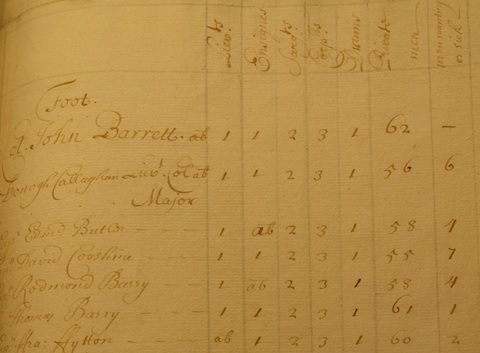 Lieu:ts Ensignes Sarg:ts Corp:ls Drums Private men men wanting or sick
Foot.
Col John Barrett. ab 1 1 2 3 1 62 —
Donogh Callaghan Liev.t Col ab 1 1 2 3 1 56 6
Major
Edmd Butler 1 ab 2 3 1 58 4
David 1 1 2 3 1 55 7
Redmond Barry 1 ab 2 3 1 58 4
Thomas Barry 1 1 2 3 1 61 1
Aylton ab 1 2 3 1 60 2